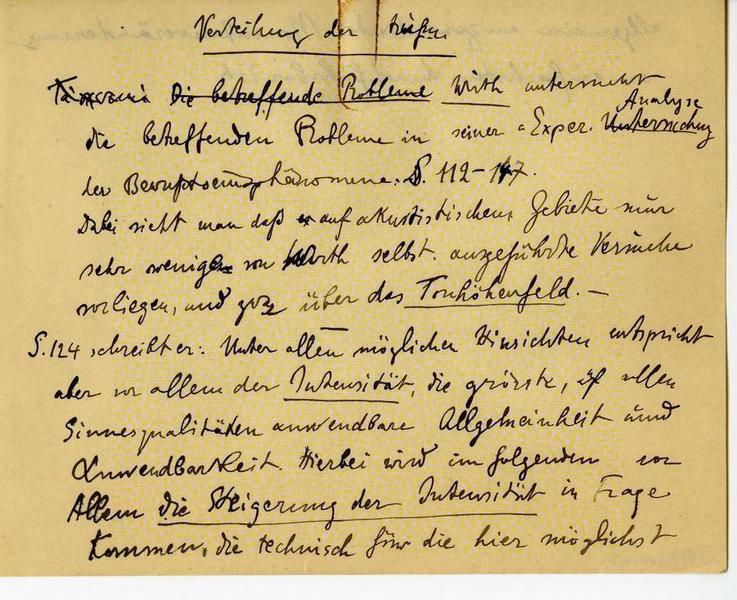 Verteilung der
Die betreffende Probleme Wirth untersucht
die betreffenden Probleme in seiner "Exper. Untersuchung Analyse
der Bewußtseinsphänomene. S. 112-147.
Dabei sieht man daß er auf akustistischen Gebiete nur
sehr wenige von Wirth selbst ausgeführte Versuche
vorliegen, und zwar über das Tonhöhenfeld. —
S. 124 schreibt er: Unter allen möglichen Hinsichten entspricht
aber vor allem der Intensität, die grösste, auf allen
Sinnesqualitäten anwendbare Allgemeinheit und
Anwendbarkeit. Hierbei wird im folgenden vor
Allem die Steigerung der Intensität in Frage
kommen, die technisch für die hier möglichst